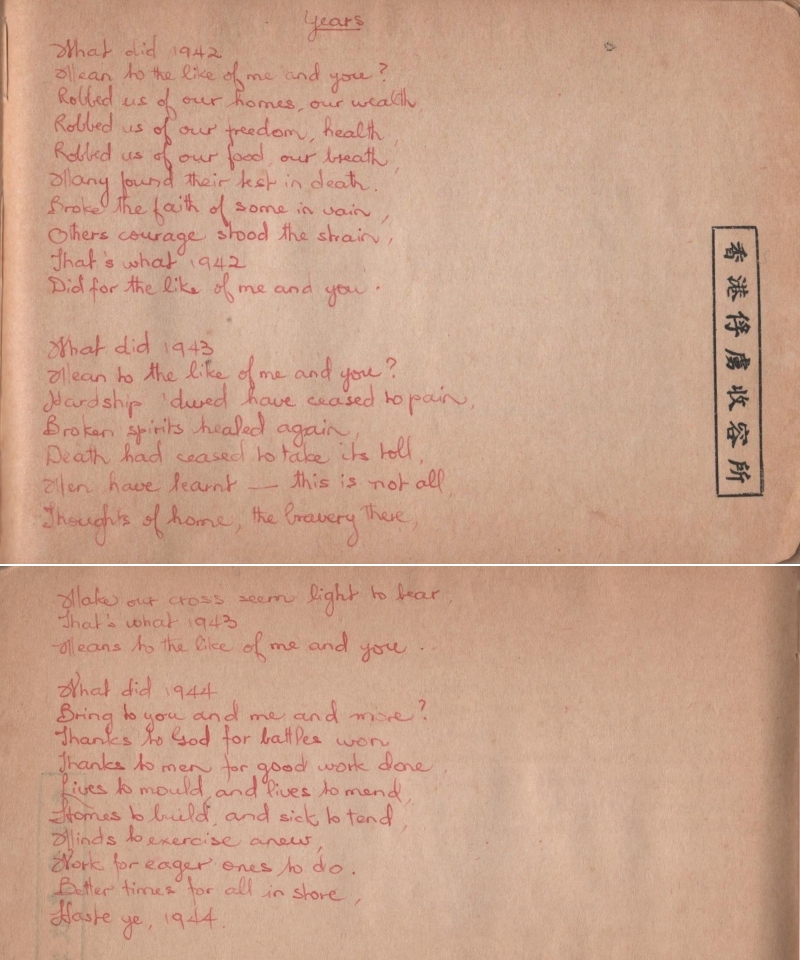 Years
What did 1942
Mean to the like of me and you?
Robbed us of our homes, our wealth
Robbed us of our freedom, health,
Robbed us of our food, our breath,
Many found their rest in death.
Broke the faith of some in vain,
Others courage stood the strain,
That's what 1942
Did for the like of me and you.
What did 1943
Mean to the like of me and you?
Hardship 'dured have ceased to pain,
Broken spirits healed again,
Death had ceased to take its toll,
Men have learnt — this is not all,
Thoughts of home, the bravery there,
香港俘虜收容所
Make our cross seem light to bear.
That's what 1943
Means to the like of me and you..
What did 1944
Bring to you and me and more?
Thanks to God for battles won
Thanks to men for good work done
Lives to mould, and lives to mend,
Homes to build, and sick to tend,
Minds to exercise anew,
Work for eager ones to do.
Better times for all in store,
Haste ye, 1944.